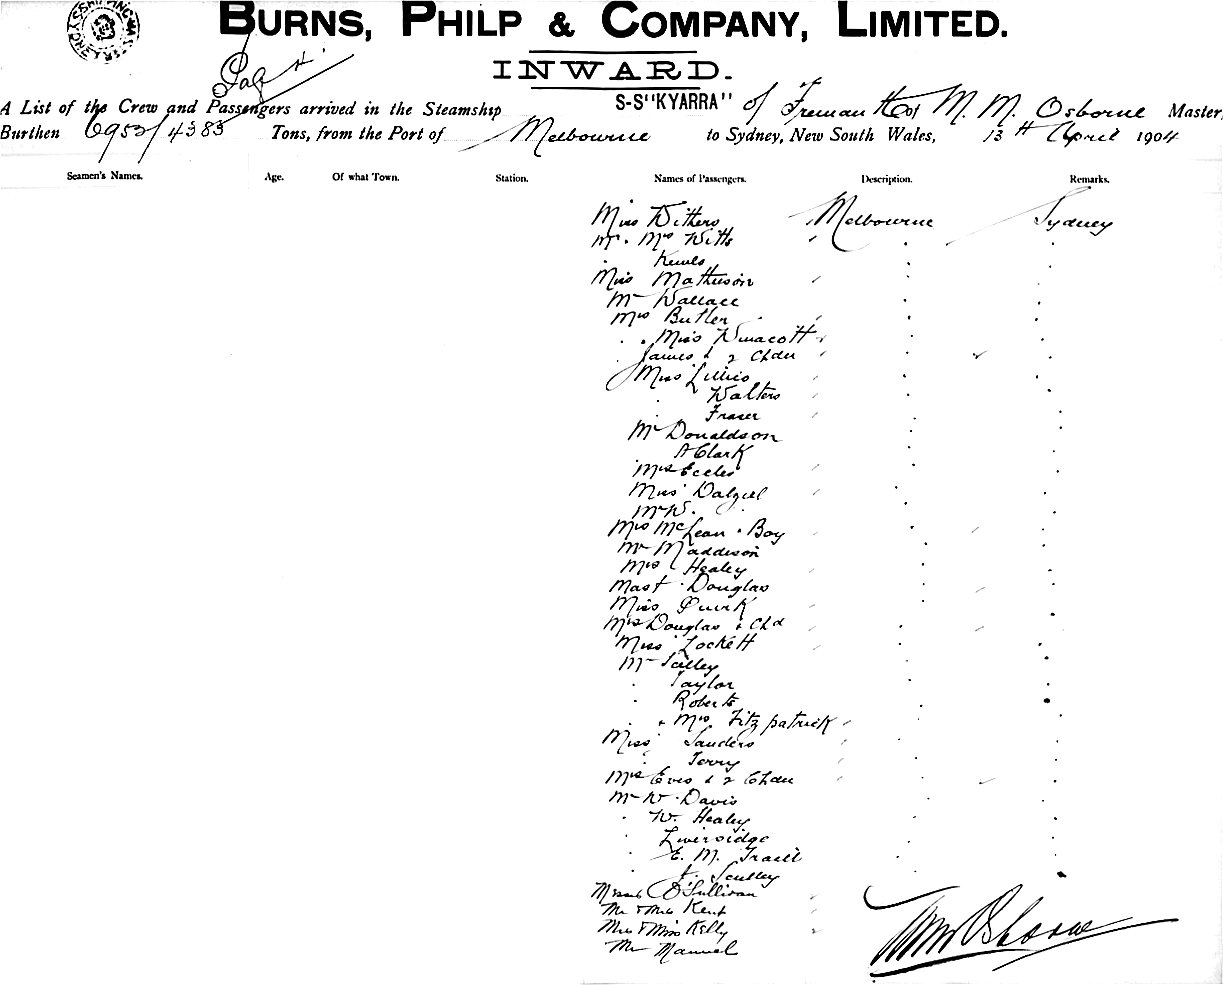 BURNS, PHILP & COMPANY, LIMITED.
INWARD.
A List of the Crew and Passengers arrived in the Steamship S-S "KYARRA" of Fremantle M. M. Osborne Master,
Burthen 6953/4383 Tons, from the Port of Melbourne to Sydney, New South Wales, 13th April 1904
Seamen's Names. Age. Of what Town. Station. Names of Passengers. Description. Remarks.
Miss Withers Melbourne Sydney
Mr. Mrs Witts
Miss Matheson
Mr Wallace
Mrs Butler
Miss Winacott
James & 2 Chdn
Miss Lillis
Walters
Fraser
Mr Donaldson
A Clark
Mrs Eccles
Miss Dalziel
Mr W.
Mrs McLean & Boy
Mr Maddison
Mrs Healey
Mast. Douglas
Miss Quirk
Mrs Douglas & Chd
Miss Lockett
Mr Talley
Taylor
Roberts
& Mrs Fitzpatrick
Miss Sanders
Terry
Mrs Eves & 2 Chdn
Mr W. Davis
W. Healey
Liversidge
E. M. Traill
J. Scully
O'Sullivan
Mr & Mrs Kent
Mrs & Miss Kelly
Mr Manuel